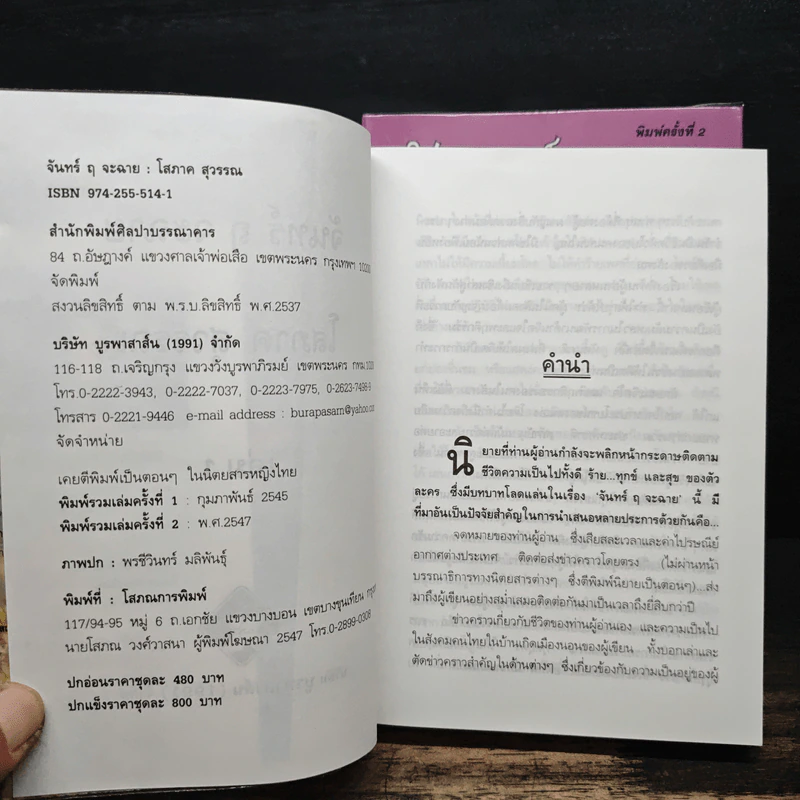 จันทร์ ฤ จะฉาย : โสภาค สุวรรณ
ISBN 974-255-514-1
สำนักพิมพ์ศิลปาบรรณาคาร
84 ถ.อัษฎางค์ แขวงศาลเจ้าพ่อเสือ เขตพระนคร กรุงเทพฯ 10200
จัดพิมพ์
สงวนลิขสิทธิ์ ตาม พ.ร.บ.ลิขสิทธิ์ พ.ศ.2537
บริษัท บูรพาสาส์น (1991) จำกัด
116-118 ถ.เจริญกรุง แขวงวังบูรพาภิรมย์ เขตพระนคร กทม.10200
โทร.0-2222-3943, 0-2222-7037, 0-2223-7975, 0-2623-7488-9
โทรสาร 0-2221-9446 e-mail address : burapasarn@yahoo.com
จัดจำหน่าย
เคยตีพิมพ์เป็นตอนๆ ในนิตยสารหญิงไทย
พิมพ์รวมเล่มครั้งที่ 1 : กุมภาพันธ์ 2545
พิมพ์รวมเล่มครั้งที่ 2 : พ.ศ.2547
ภาพปก : พรชีวินทร์ มลิพันธุ์
พิมพ์ที่ : โสภณการพิมพ์
117/94-95 หมู่ 6 ถ.เอกชัย แขวงบางบอน เขตบางขุนเทียน กรุงเทพฯ
นายโสภณ วงศ์วาสนา ผู้พิมพ์โฆษณา 2547 โทร.0-2899-0308
ปกอ่อนราคาชุดละ 480 บาท
ปกแข็งราคาชุดละ 800 บาท
พิมพ์ครั้งที่ 2
คำนำ
นิยายที่ท่านผู้อ่านกำลังจะพลิกหน้ากระดาษติดตาม
ชีวิตความเป็นไปทั้งดี ร้าย...ทุกข์ และสุข ของตัว
ละคร ซึ่งมีบทบาทโลดแล่นในเรื่อง ‘จันทร์ ฤ จะฉาย’ นี้ มี
ที่มาอันเป็นปัจจัยสำคัญในการนำเสนอหลายประการด้วยกันคือ...
จดหมายของท่านผู้อ่าน ซึ่งเสียสละเวลาและค่าไปรษณีย์
อากาศต่างประเทศ ติดต่อส่งข่าวคราวโดยตรง (ไม่ผ่านหน้า
บรรณาธิการทางนิตยสารต่างๆ ซึ่งตีพิมพ์นิยายเป็นตอนๆ)...ส่ง
มาถึงผู้เขียนอย่างสม่ำเสมอติดต่อกันมาเป็นเวลาถึงยี่สิบกว่าปี
ข่าวคราวเกี่ยวกับชีวิตของท่านผู้อ่านเอง และความเป็นไป
ในสังคมคนไทยในบ้านเกิดเมืองนอนของผู้เขียน ทั้งบอกเล่าและ
ตัดข่าวคราวสำคัญในด้านต่างๆ ซึ่งเกี่ยวข้องกับความเป็นอยู่ของผู้